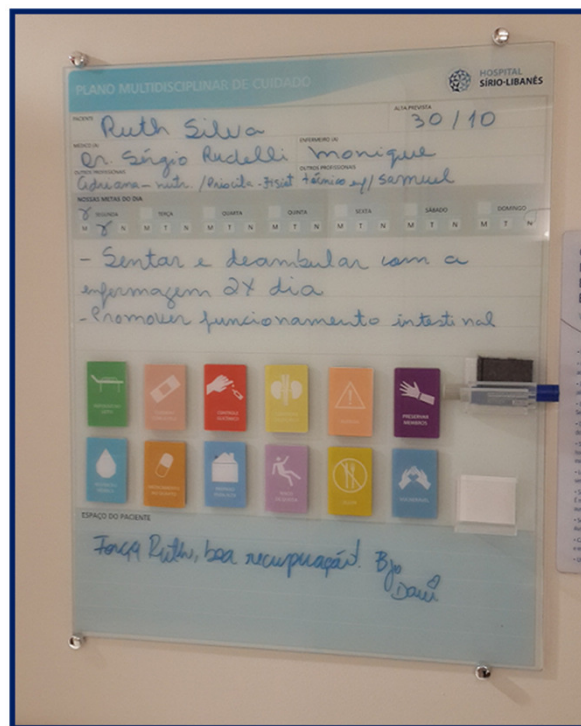 PLANO MULTIDISCIPLINAR DE CUIDADO
HOSPITAL
SÍRIO-LIBANÊS
PACIENTE
Ruth Silva
ALTA PREVISTA
30/10
MÉDICO (A)
Dr. Sérgio
ENFERMEIRO (A)
Monique
OUTROS PROFISSIONAIS
Adriana - nutr. / Priscila - Fisiot
OUTROS PROFISSIONAIS
Samuel
NOSSAS METAS DO DIA
SEGUNDA TERÇA QUARTA QUINTA SEXTA SÁBADO DOMINGO
M T N M T N M T N M T N M T N M T N M T N
- Sentar e deambular com a
enfermagem 2x dia
- Promover funcionamento intestinal
CONTROLE
GLICÊMICO
PRESERVAR
MEMBROS
JEJUM
ESPAÇO DO PACIENTE
Força Ruth, boa recuperação! Bjo